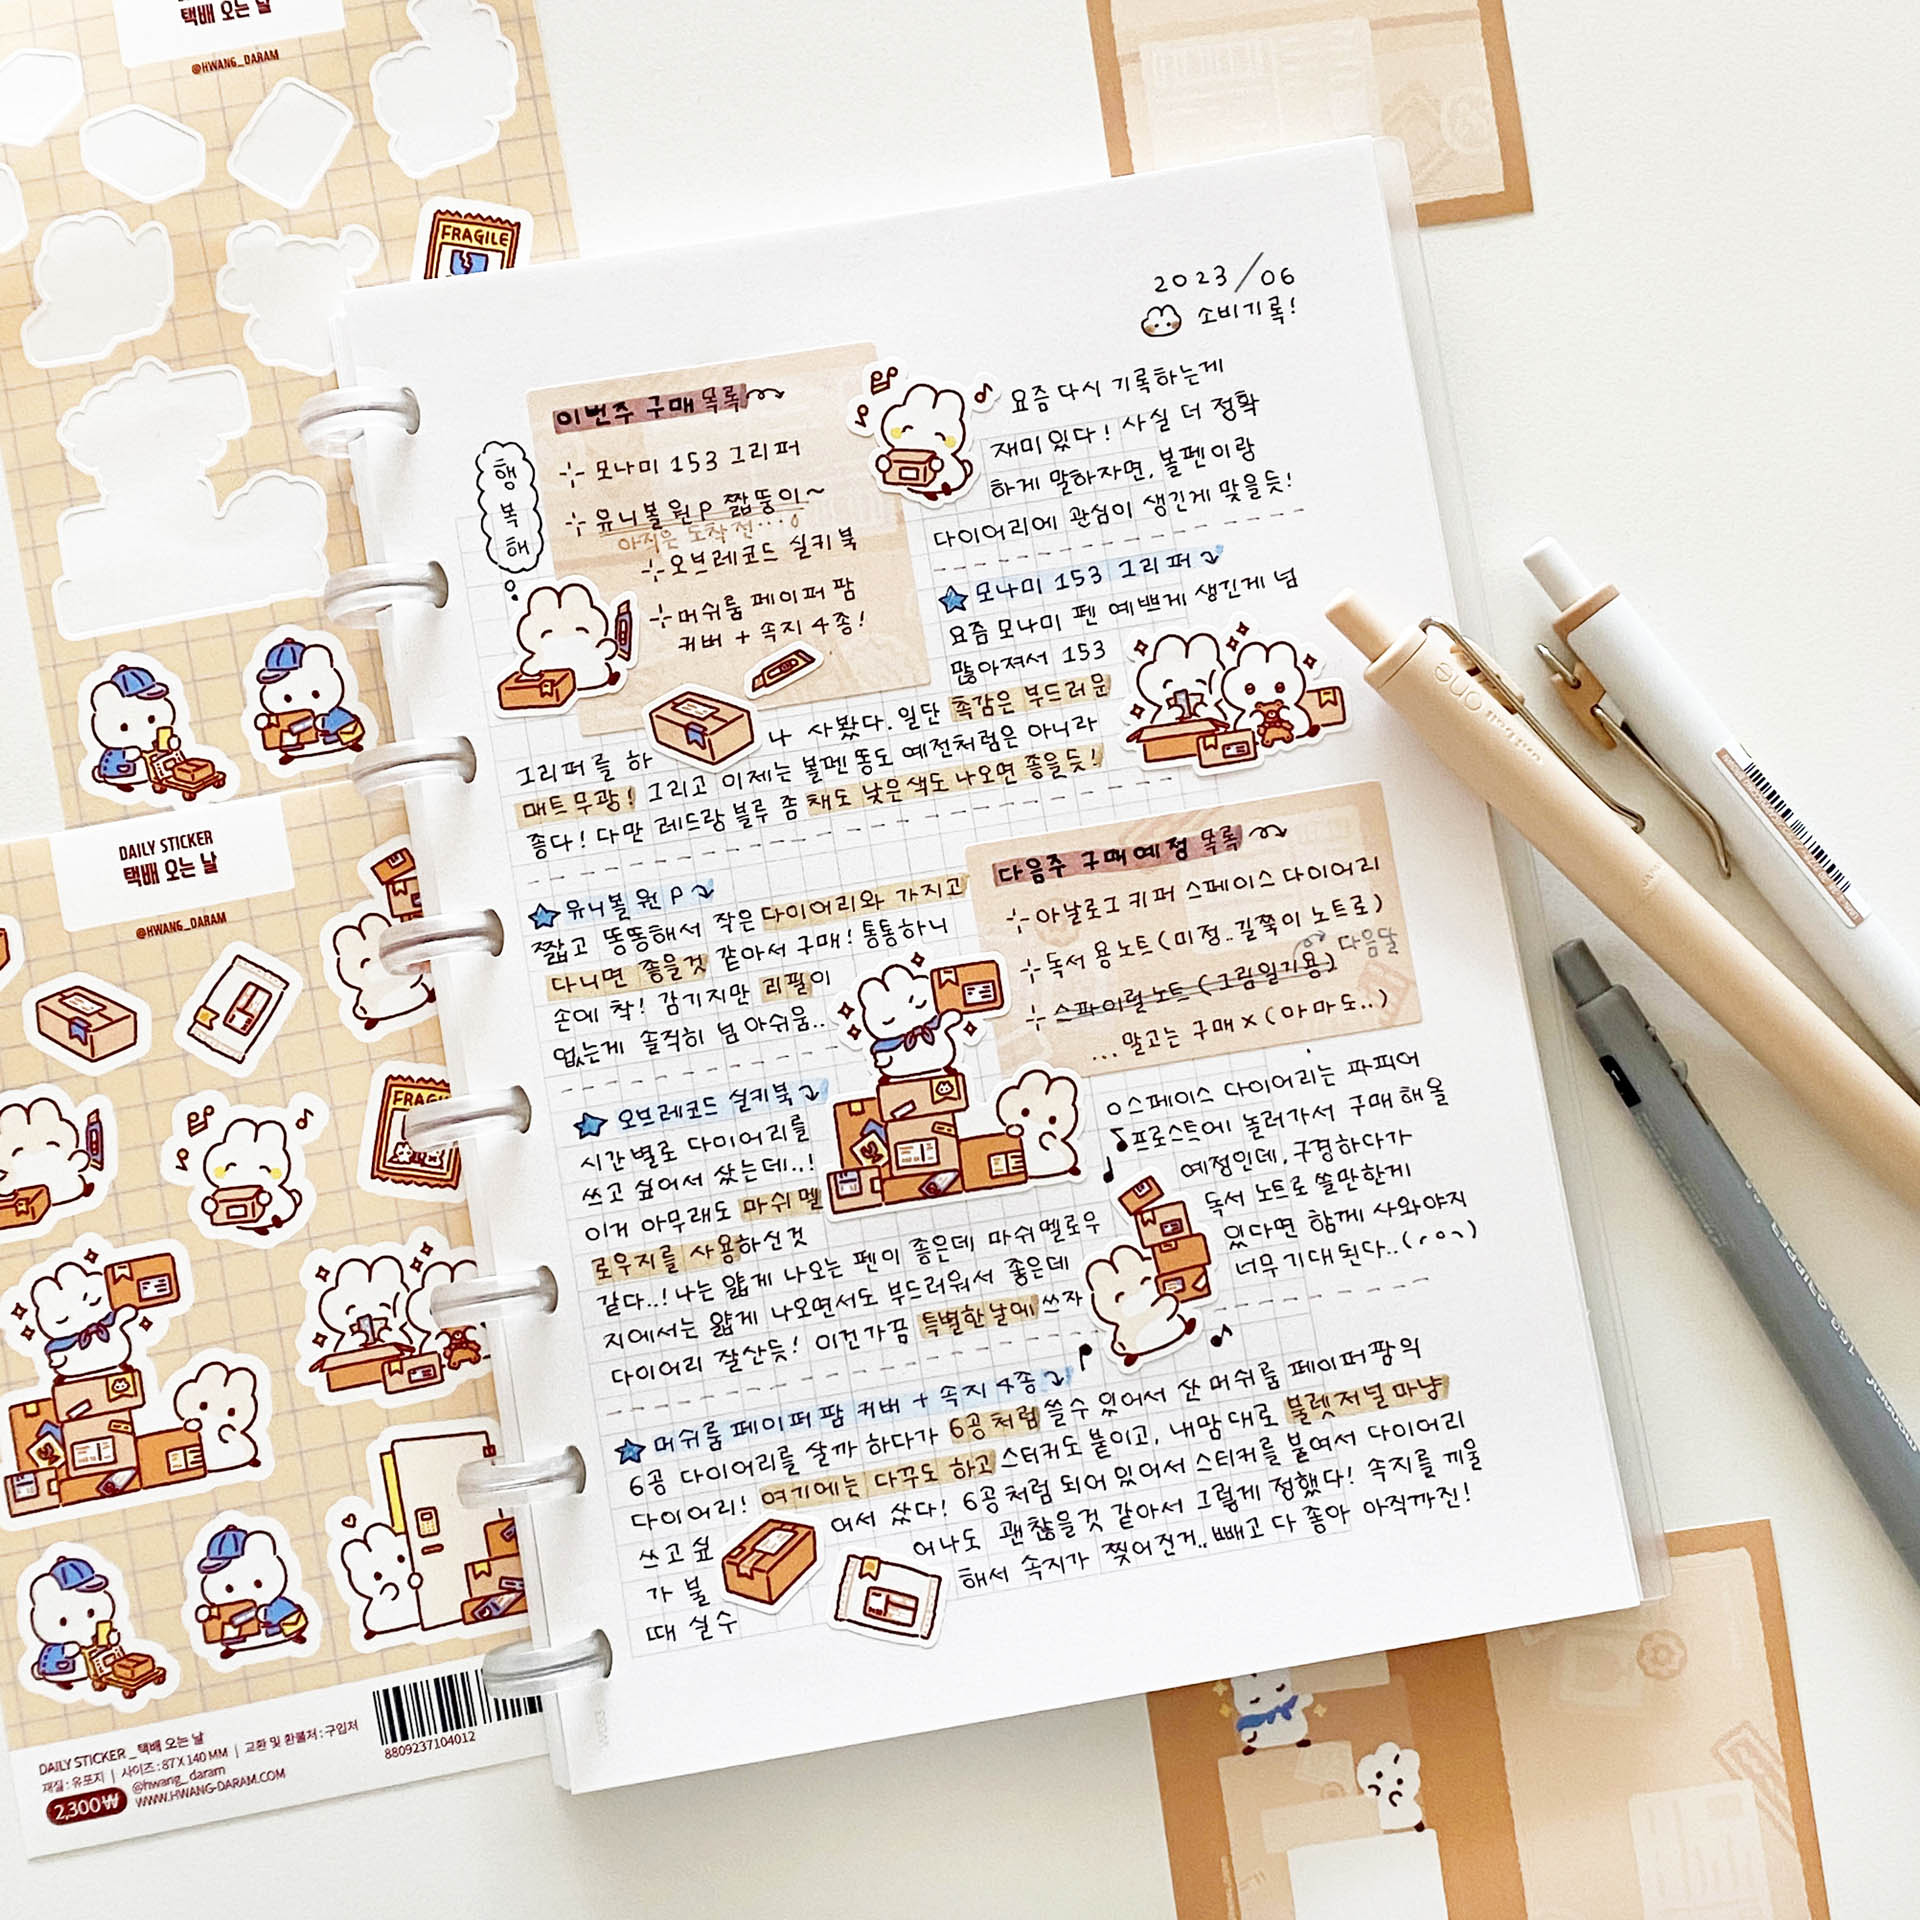 택배 오는 날
@HWANG_DARAM
FRAGILE
2023/06
소비기록!
이번주 구매 목록
모나미 153 그리퍼
유니볼 원 P 짧뚱이~
아직은 도착 전...
오브레코드 실키북
머쉬룸 페이퍼 팜
커버 + 속지 4종!
행복해
요즘 다시 기록하는게
재미있다! 사실 더 정확
하게 말하자면, 볼펜이랑
다이어리에 관심이 생긴게 맞을듯!
모나미 153 그리퍼
요즘 모나미 펜 예쁘게 생긴게 넘
많아져서 153
그리퍼를 하나 사봤다. 일단 촉감은 부드러운
매트무광! 그리고 이제는 볼펜똥도 예전처럼은 아니라
좋다! 다만 레드랑 블루 좀 채도 낮은색도 나오면 좋을듯!
유니볼 원 P
짧고 똥똥해서 작은 다이어리와 가지고
다니면 좋을것 같아서 구매! 통통하니
손에 착! 감기지만 리필이
없는게 솔직히 넘 아쉬움..
다음주 구매예정 목록
아날로그 키퍼 스페이스 다이어리
독서 용 노트 (미정..길쭉이 노트로)
스파이럴 노트 (그림일기용)
다음달
...말고는 구매 x (아마도..)
오브레코드 실키북
시간별로 다이어리를
쓰고 싶어서 샀는데..!
이거 아무래도 마쉬멜
로우지를 사용하신것
같다..! 나는 얇게 나오는 펜이 좋은데 마쉬멜로우
지에서는 얇게 나오면서도 부드러워서 좋은데
다이어리 잘산듯! 이건 가끔 특별한날에 쓰자
스페이스 다이어리는 파피어
프로스트에 놀러가서 구매해올
예정인데, 구경하다가
독서 노트로 쓸만한게
있다면 함께 사와야지
너무 기대된다..
머쉬룸 페이퍼팜 커버 + 속지 4종
6공 다이어리를 살까 하다가 6공처럼 쓸수 있어서 산 머쉬룸 페이퍼팜의
다이어리! 여기에는 다꾸도 하고 스티커도 붙이고, 내맘대로 불렛저널 마냥
쓰고싶어서 샀다! 6공처럼 되어 있어서 스티커를 붙여서 다이어리
가 불어나도 괜찮을것 같아서 그렇게 정했다! 속지를 끼울
때 실수해서 속지가 찢어진거.. 빼고 다 좋아 아직까진!
DAILY STICKER
택배 오는 날
@HWANG_DARAM
DAILY STICKER _ 택배 오는 날
재질 : 유포지 | 사이즈 : 87 X 140 MM | 교환 및 환불처 : 구입처
2,300₩
@hwang_daram
WWW.HWANG-DARAM.COM
8809237104012
uniball one
monami 153 GRIPPER